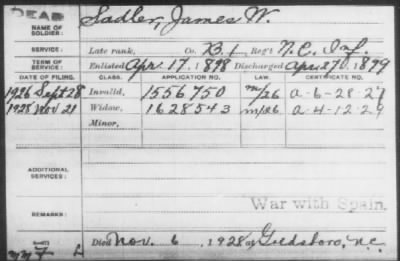 DEAD
NAME OF SOLDIER: Sadler, James W.
SERVICE: Late rank, Co. B 1 Reg't N.C. Inf.
TERM OF SERVICE: Enlisted Apr. 17, 1898 Discharged Apr. 22, 1899
DATE OF FILING. CLASS. APPLICATION NO. LAW. CERTIFICATE NO.
1926 Sept 28 Invalid, 1556750 m/26 a-6-28-27
1928 Nov 21 Widow, 1628543 m/26 a-4-12-29
Minor,
ADDITIONAL SERVICES:
War with Spain.
REMARKS:
Died Nov. 6, 1928, at Goldsboro, N.C.